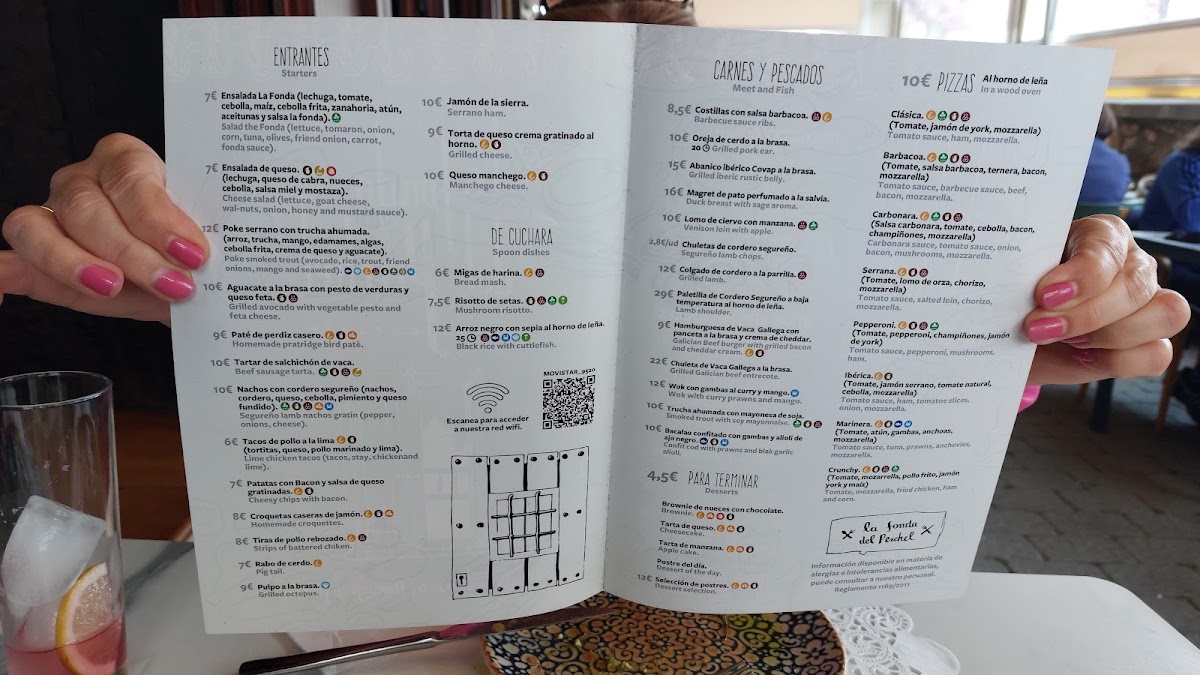 ENTRANTES
Starters
7€ Ensalada La Fonda (lechuga, tomate,
cebolla, maíz, cebolla frita, zanahoria, atún,
aceitunas y salsa la fonda).
Salad the Fonda (lettuce, tomaron, onion,
corn, tuna, olives, friend onion, carrot,
fonda sauce).
7€ Ensalada de queso.
(lechuga, queso de cabra, nueces,
cebolla, salsa miel y mostaza).
Cheese salad (lettuce, goat cheese,
wal-nuts, onion, honey and mustard sauce).
12€ Poke serrano con trucha ahumada.
(arroz, trucha, mango, edamames, algas,
cebolla frita, crema de queso y aguacate).
Poke smoked trout (avocado, rice, trout, friend
onions, mango and seaweed).
10€ Aguacate a la brasa con pesto de verduras y
queso feta.
Grilled avocado with vegetable pesto and
feta cheese.
9€ Paté de perdiz casero.
Homemade pratridge bird patè.
10€ Tartar de salchichón de vaca.
Beef sausage tarta.
10€ Nachos con cordero segureño (nachos,
cordero, queso, cebolla, pimiento y queso
fundido).
Segureño lamb nachos gratin (pepper,
onions, cheese).
6€ Tacos de pollo a la lima
(tortitas, queso, pollo marinado y lima).
Lime chicken tacos (tacos, stay, chickenand
lime).
7€ Patatas con Bacon y salsa de queso
gratinadas.
Cheesy chips with bacon.
8€ Croquetas caseras de jamón.
Homemade croquettes.
8€ Tiras de pollo rebozado.
Strips of battered chiken.
7€ Rabo de cerdo.
Pig tail.
9€ Pulpo a la brasa.
Grilled octopus.
10€ Jamón de la sierra.
Serrano ham.
9€ Torta de queso crema gratinado al
horno.
Grilled cheese.
10€ Queso manchego.
Manchego cheese.
DE CUCHARA
Spoon dishes
6€ Migas de harina.
Bread mash.
7,5€ Risotto de setas.
Mushroom risotto.
12€ Arroz negro con sepia al horno de leña.
25
Black rice with cuttlefish.
MOVISTAR_9520
Escanea para acceder
a nuestra red wifi.
CARNES Y PESCADOS
Meet and Fish
8,5€ Costillas con salsa barbacoa.
Barbecue sauce ribs.
10€ Oreja de cerdo a la brasa.
20 Grilled pork ear.
15€ Abanico ibérico Covap a la brasa.
Grilled iberic rustic belly.
16€ Magret de pato perfumado a la salvia.
Duck breast with sage aroma.
10€ Lomo de ciervo con manzana.
Venison loin with apple.
2,8€/ud Chuletas de cordero segureño.
Segureño lamb chops.
12€ Colgado de cordero a la parrilla.
Grilled lamb.
29€ Paletilla de Cordero Segureño a baja
temperatura al horno de leña.
Lamb shoulder.
9€ Hamburguesa de Vaca Gallega con
panceta a la brasa y crema de cheddar.
Galician Beef burger with grilled bacon
and cheddar cream.
22€ Chuleta de Vaca Gallega a la brasa.
Grilled Galician beef entrecote.
12€ Wok con gambas al curry y mango.
Wok with curry prawns and mango.
10€ Trucha ahumada con mayonesa de soja.
Smoked trout with soy mayonnaise.
10€ Bacalao confitado con gambas y alioli de
ajo negro.
Confit cod with prawns and blak garlic
alioli.
4,5€ PARA TERMINAR
Desserts
Brownie de nueces con chocolate.
Brownie.
Tarta de queso.
Cheesecake.
Tarta de manzana.
Apple cake.
Postre del día.
Dessert of the day.
12€ Selección de postres.
Dessert selection.
10€ PIZZAS Al horno de leña
In a wood oven
Clásica.
(Tomate, jamón de york, mozzarella)
Tomato sauce, ham, mozzarella.
Barbacoa.
(Tomate, salsa barbacoa, ternera, bacon,
mozzarella)
Tomato sauce, barbecue sauce, beef,
bacon, mozzarella.
Carbonara.
(Salsa carbonara, tomate, cebolla, bacon,
champiñones, mozzarella)
Carbonara sauce, tomato sauce, onion,
bacon, mushrooms, mozzarella.
Serrana.
(Tomate, lomo de orza, chorizo,
mozzarella)
Tomato sauce, salted loin, chorizo,
mozzarella.
Pepperoni.
(Tomate, pepperoni, champiñones, jamón
de york)
Tomato sauce, pepperoni, mushrooms.
ham.
Ibérica.
(Tomate, jamón serrano, tomate natural,
cebolla, mozzarella)
Tomato sauce, ham, tomatoe slices.
onion, mozzarella.
Marinera.
(Tomate, atún, gambas, anchoas,
mozzarella)
Tomato sauce, tuna, prawns, anchovies,
mozzarella.
Crunchy.
(Tomate, mozarrella, pollo frito, jamón
york y maíz)
Tomato, mozzarella, fried chicken, ham
and corn.
la fonda
del Perchel
Información disponible en materia de
alergias e intolerancias alimentarias,
puede consultar a nuestro personal.
Reglamento 1169/2011